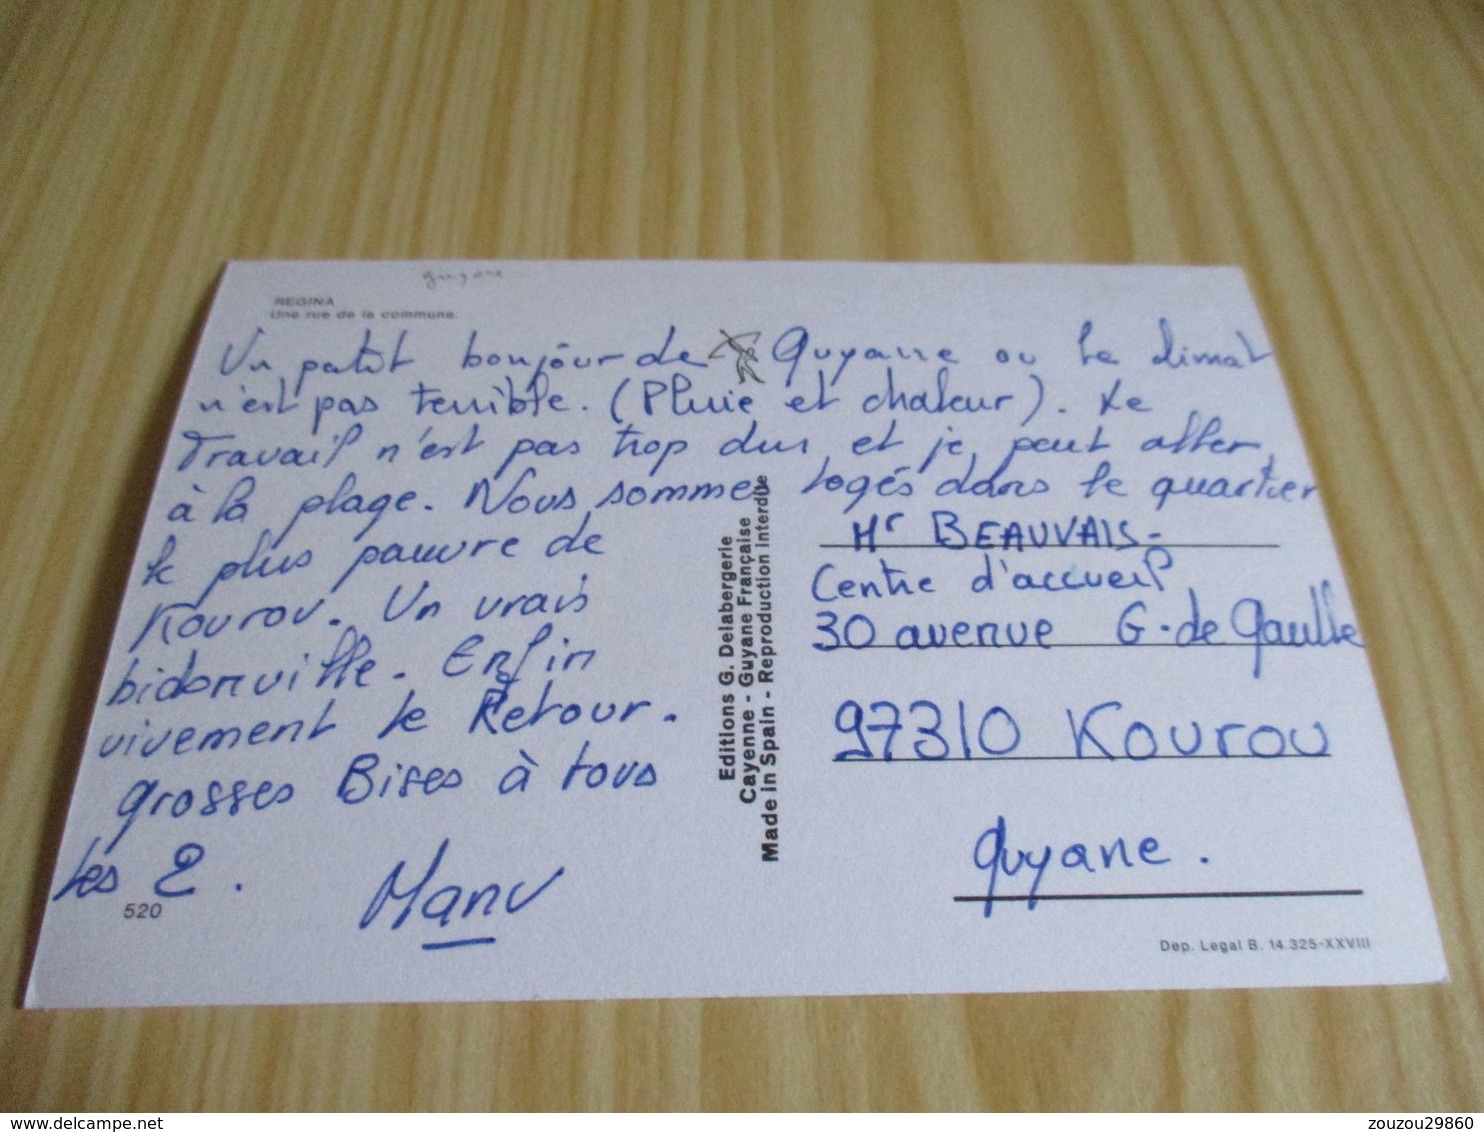 guyane
REGINA
Une rue de la commune.
Un petit bonjour de Guyane ou le climat
n'est pas terrible. (Pluie et chaleur). Le
Travail n'est pas trop dur et je peut aller
à la plage. Nous sommes logés dans le quartier
le plus pauvre de
Kourou. Un vrais
bidonville. Enfin
vivement le Retour.
grosses Bises à tous
les 2.
Manu
520
Editions G. Delabergerie
Cayenne - Guyane Française
Made in Spain - Reproduction interdite
Mr BEAUVAIS-
Centre d'accueil
30 avenue G. de Gaulle
97310 Kourou
Guyane.
Dep. Legal B. 14.325-XXVIII
delcampe.net
zouzou29860